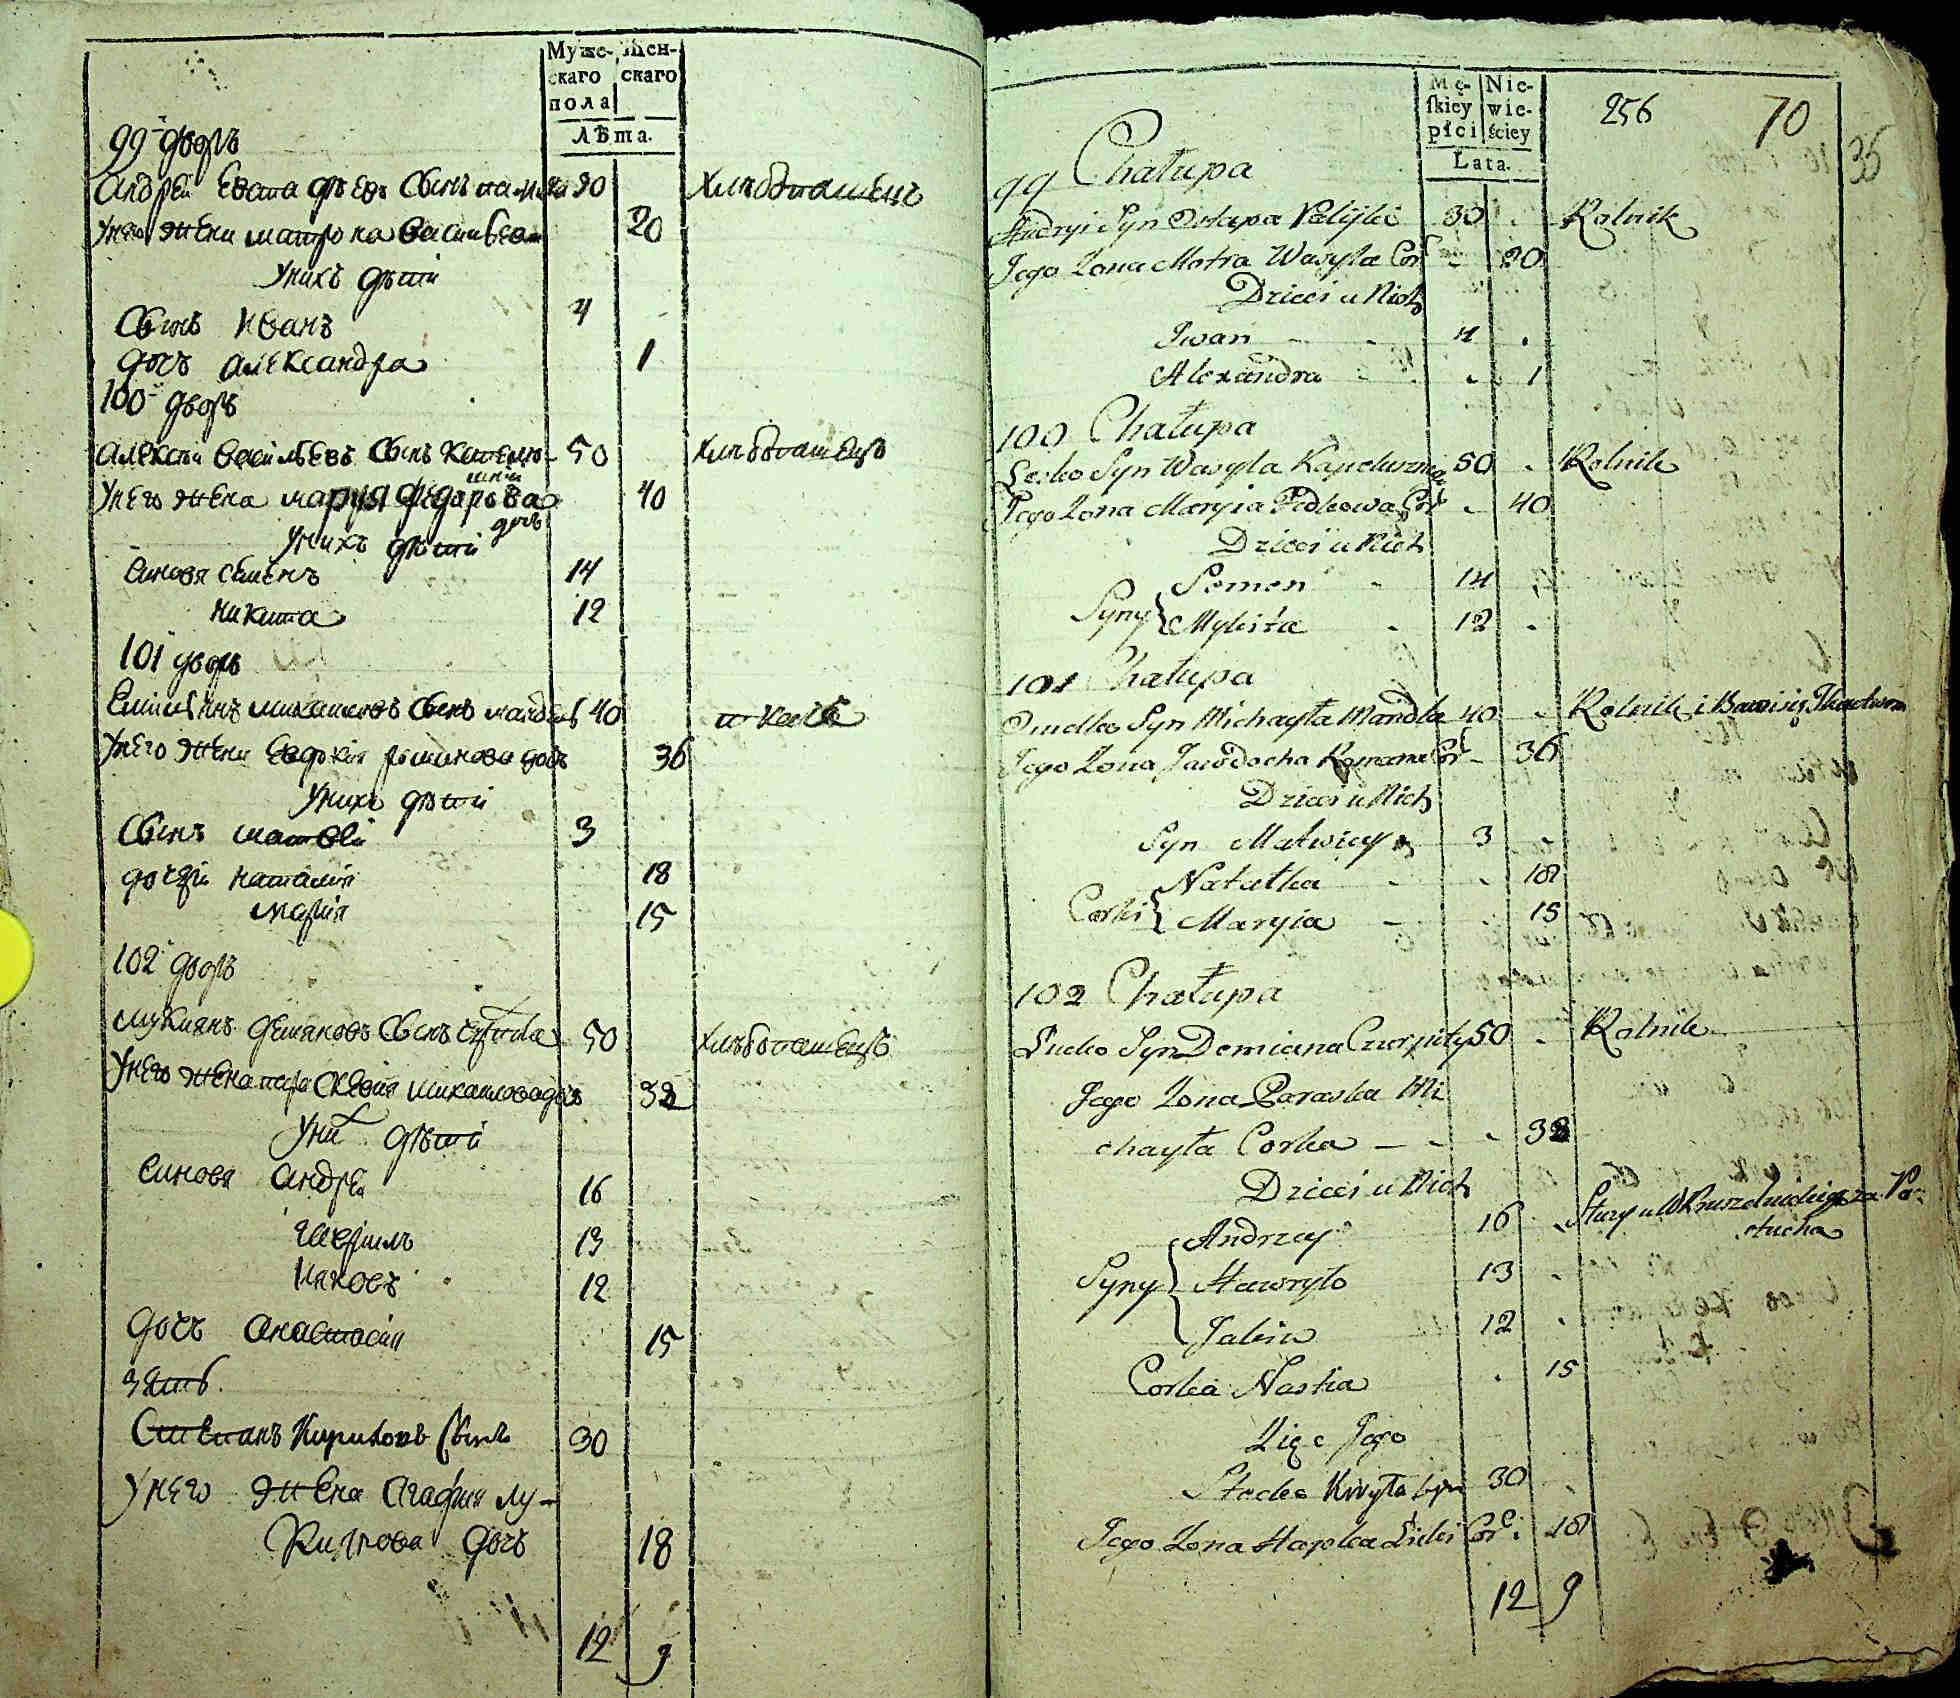 Муже-
скаго
пола
Жен-
скаго
Лѣта.
99 дворъ
Андрей Евстафѣевъ Сынъ 30
Унего Жена матрона Василева 20
Унихъ дѣти
Сынъ Иванъ 4
дочъ Александра 1
100 дворъ
Алексѣй Васильевъ Сынъ 50 хлѣбопашецъ
Унего Жена маруя Федорова дочъ 40
Унихъ дѣти
Синовя Семенъ 14
Никита 12
101 дворъ
Емилианъ михаиловъ Сынъ 40
Унего Жена Евдокия романова дочъ 36
Унихъ дѣти
Сынъ матвей 3
дочери наталия 18
мария 15
102 дворъ
Лукианъ демяновъ Сынъ 50 хлѣбопашецъ
Унего Жена параскевия михаилова дочъ 32
Уних дѣти
Синовя Андрей 16
Гаврилъ 13
Ияковъ 12
дочъ Анастасия 15
зять
Стефанъ Кириловъ Сынъ 30
Унего Жена Агафия лу-
киянова дочъ 18
12 9
Mę-
skiey
płci
Nie-
wie-
ściey
Lata.
256 70
35
99 Chałupa
Andryi Syn Ostapa 30 . Rolnik
Jego Zona Motra Wasyla Cor - 20
Dzieci u Nich
Iwan - - 4 .
Alexandra - . 1
100 Chałupa
Lesko Syn Wasyla Kapelusznik 50 . Rolnik
Jego Zona Maryia Fedkowa Cor - 40
Dzieci u Nich
Syny { Semen - 14 .
Mykita - 12 .
101 Chałupa
Omelko Syn Michayła Mandla 40 - Rolnik i Bawi się Tkactwem
Jego Zona Jawdocha Romana Cor - 36
Dzieci u Nich
Syn Matwiey 3 -
Corki { Natalka - - 18
Maryia - - 15
102 Chałupa
Łucko Syn Demiana Czurpity 50 . Rolnik
Jego Zona Paraska Mi
chayła Corka - - - 32
Dzieci u Nich
Syny { Andrzey 16 .
Hawryło 13 .
Jakiw 12 .
Corka Nastia . 15
Zięć Jego
Stecko Kiryła Syn 30 .
Jego Zona Hapka Łucki Cor. 18
12 9